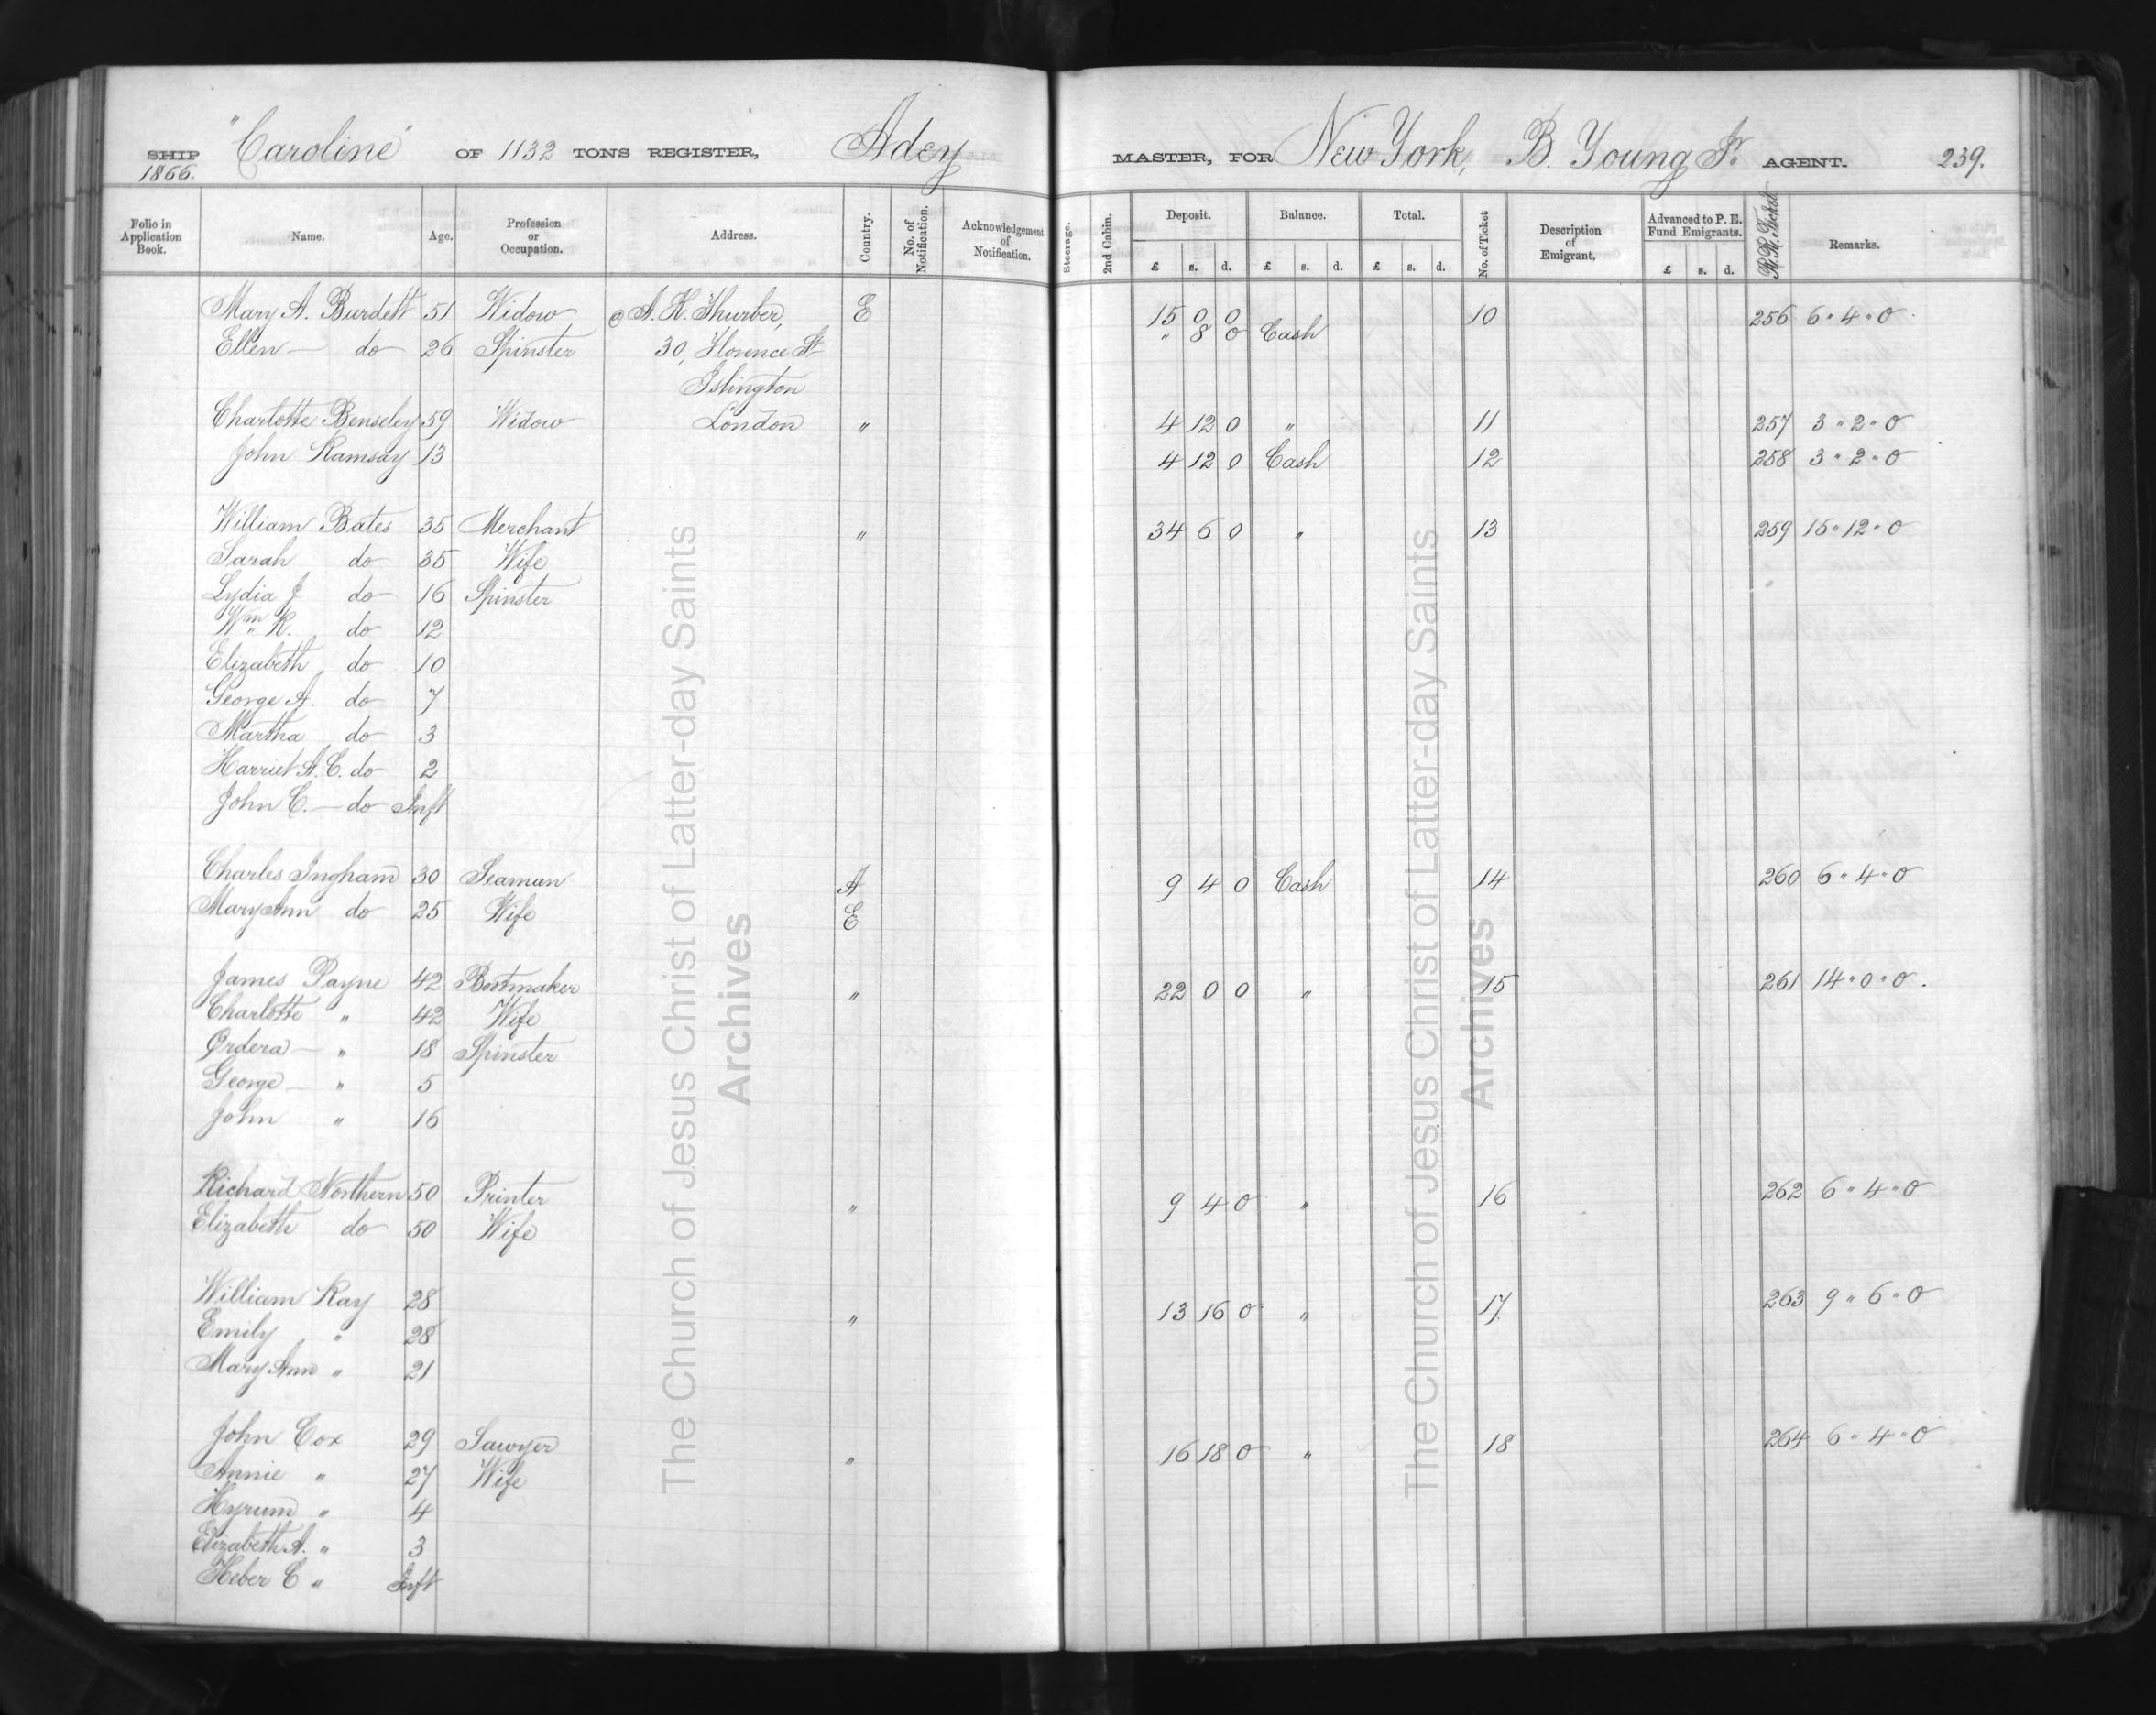 SHIP "Caroline" OF 1132 TONS REGISTER, Adey MASTER, FOR New York, B. Young Jr AGENT. 239.
1866.
Folio in Application Book. Name. Age. Profession or Occupation. Address. Country. No. of Notification. Acknowledgement of Notification. Steerage. 2nd Cabin. Deposit. Balance. Total. No. of Ticket Description of Emigrant. Advanced to P. E. Fund Emigrants. R.R. Tickets Remarks.
£ s. d. £ s. d. £ s. d. £ s. d.
Mary A. Burdett 51 Widow @ A. K. Thurber, E 15 0 0 10 256 6 " 4 " 0
Ellen — do 26 Spinster 30, Florence St " 8 0 Cash
Islington
Charlotte Benseley 59 Widow London " 4 12 0 " 11 257 3 " 2 " 0
John Ramsay 13 4 12 0 Cash 12 258 3 " 2 " 0
William Bates 35 Merchant " 34 6 0 " 13 259 15 " 12 " 0
Sarah do 35 Wife
Lydia J do 16 Spinster
Wm. R. do 12
Elizabeth do 10
George A. do 7
Martha do 3
Harriet A. C. do 2
John C. — do Inft
Charles Ingham 30 Seaman A 9 4 0 Cash 14 260 6 " 4 " 0
Mary Ann do 25 Wife E
James Payne 42 Bootmaker " 22 0 0 " 15 261 14 " 0 " 0.
Charlotte " 42 Wife
Ordera — " 18 Spinster
George — " 5
John " 16
Richard Northern 50 Printer " 9 4 0 " 16 262 6 " 4 " 0
Elizabeth do 50 Wife
William Kay 28 " 13 16 0 " 17. 263 9 " 6 " 0
Emily " 28
Mary Ann " 21
John Cox 29 Sawyer " 16 18 0 " 18 264 6 " 4 " 0
Annie " 27 Wife
Hyrum " 4
Elizabeth A. " 3
Heber C " Inft
The Church of Jesus Christ of Latter-day Saints
Archives
The Church of Jesus Christ of Latter-day Saints
Archives